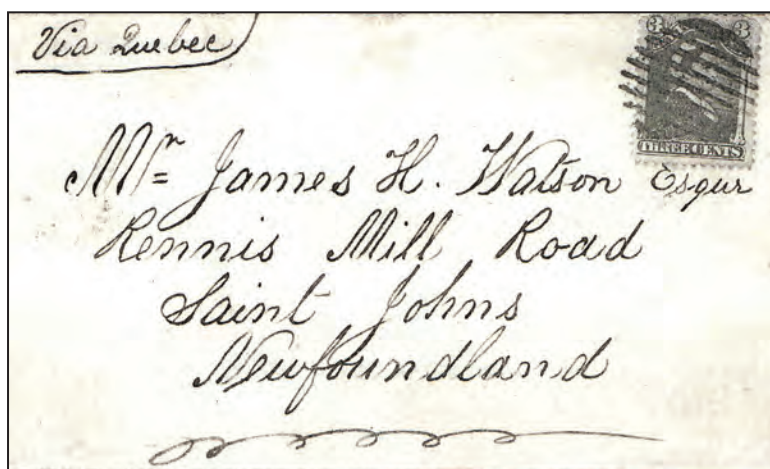 Via Quebec
3 3
THREE CENTS
Mr. James H. Watson Esqur
Rennis Mill Road
Saint Johns
Newfoundland